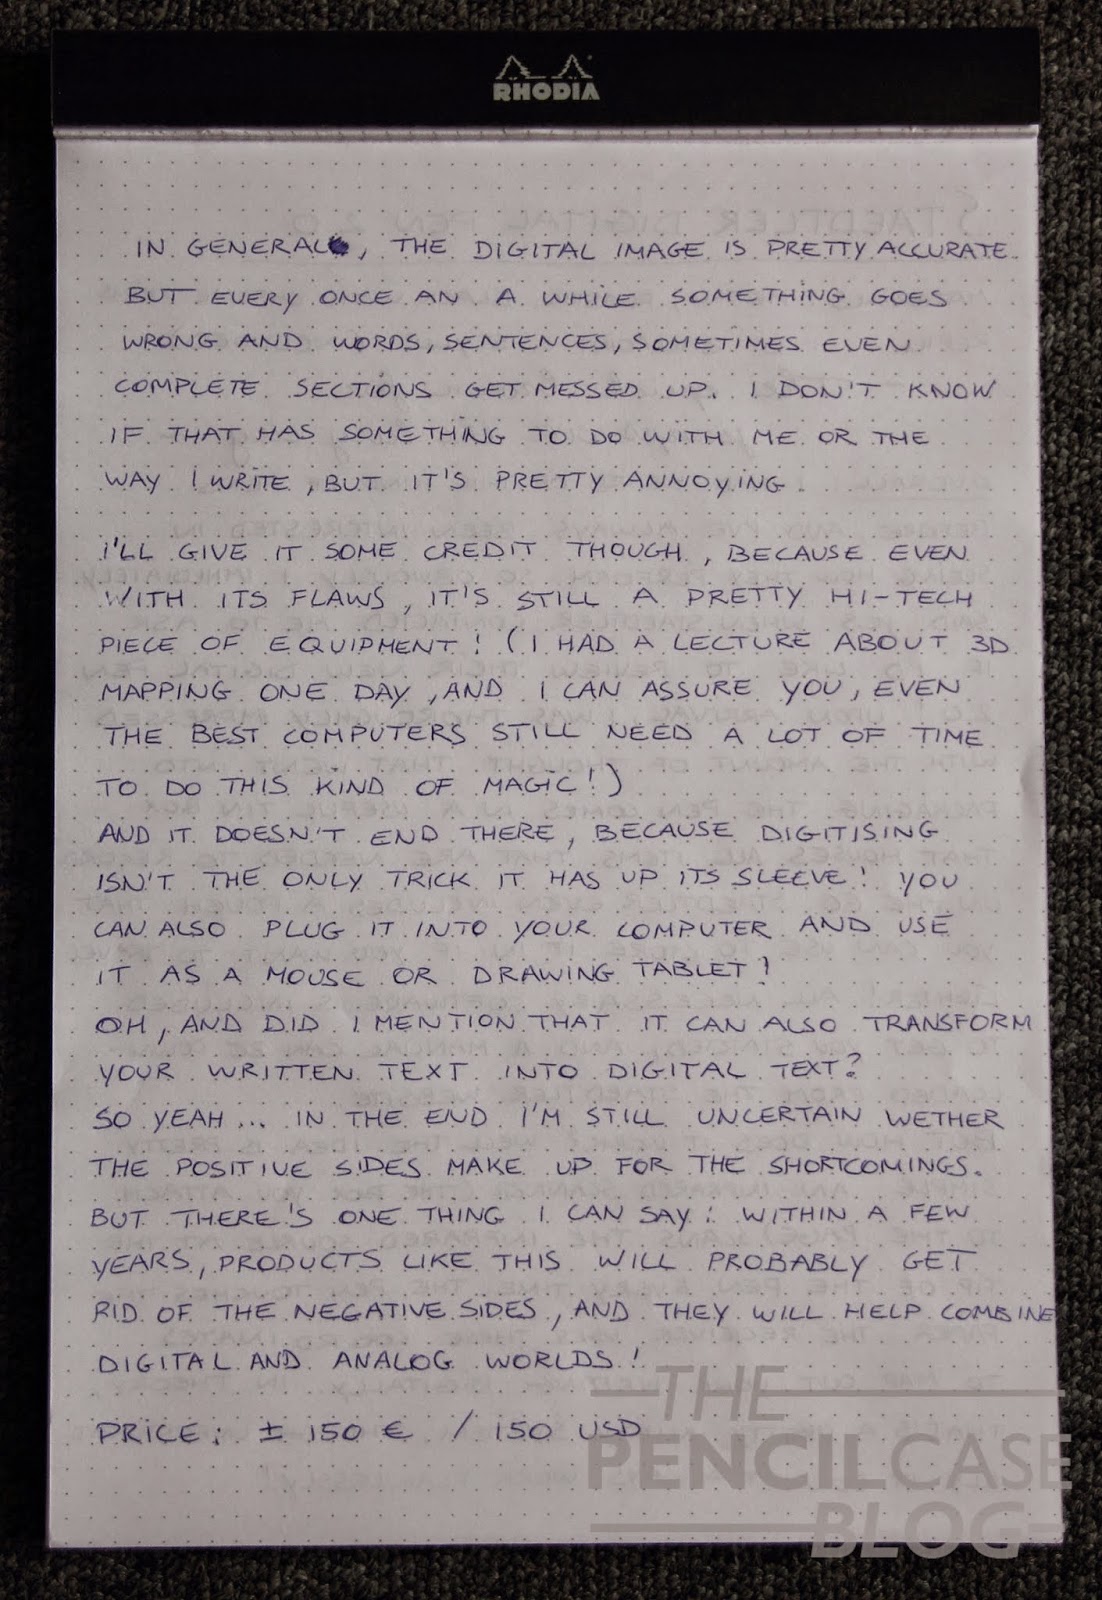 RHODIA
IN GENERAL, THE DIGITAL IMAGE IS PRETTY ACCURATE.
BUT EVERY ONCE AN A WHILE SOMETHING GOES
WRONG AND WORDS, SENTENCES, SOMETIMES EVEN
COMPLETE SECTIONS GET MESSED UP. I DON'T KNOW
IF THAT HAS SOMETHING TO DO WITH ME OR THE
WAY I WRITE, BUT IT'S PRETTY ANNOYING.
I'LL GIVE IT SOME CREDIT THOUGH, BECAUSE EVEN
WITH ITS FLAWS, IT'S STILL A PRETTY HI-TECH
PIECE OF EQUIPMENT! (I HAD A LECTURE ABOUT 3D
MAPPING ONE DAY, AND I CAN ASSURE YOU, EVEN
THE BEST COMPUTERS STILL NEED A LOT OF TIME
TO DO THIS KIND OF MAGIC!)
AND IT DOESN'T END THERE, BECAUSE DIGITISING
ISN'T THE ONLY TRICK IT HAS UP ITS SLEEVE! YOU
CAN ALSO PLUG IT INTO YOUR COMPUTER AND USE
IT AS A MOUSE OR DRAWING TABLET!
OH, AND DID I MENTION THAT IT CAN ALSO TRANSFORM
YOUR WRITTEN TEXT INTO DIGITAL TEXT?
SO YEAH... IN THE END I'M STILL UNCERTAIN WETHER
THE POSITIVE SIDES MAKE UP FOR THE SHORTCOMINGS.
BUT THERE'S ONE THING I CAN SAY: WITHIN A FEW
YEARS, PRODUCTS LIKE THIS WILL PROBABLY GET
RID OF THE NEGATIVE SIDES, AND THEY WILL HELP COMBINE
DIGITAL AND ANALOG WORLDS!
PRICE: ± 150 € / 150 USD
THE
PENCILCASE
BLOG